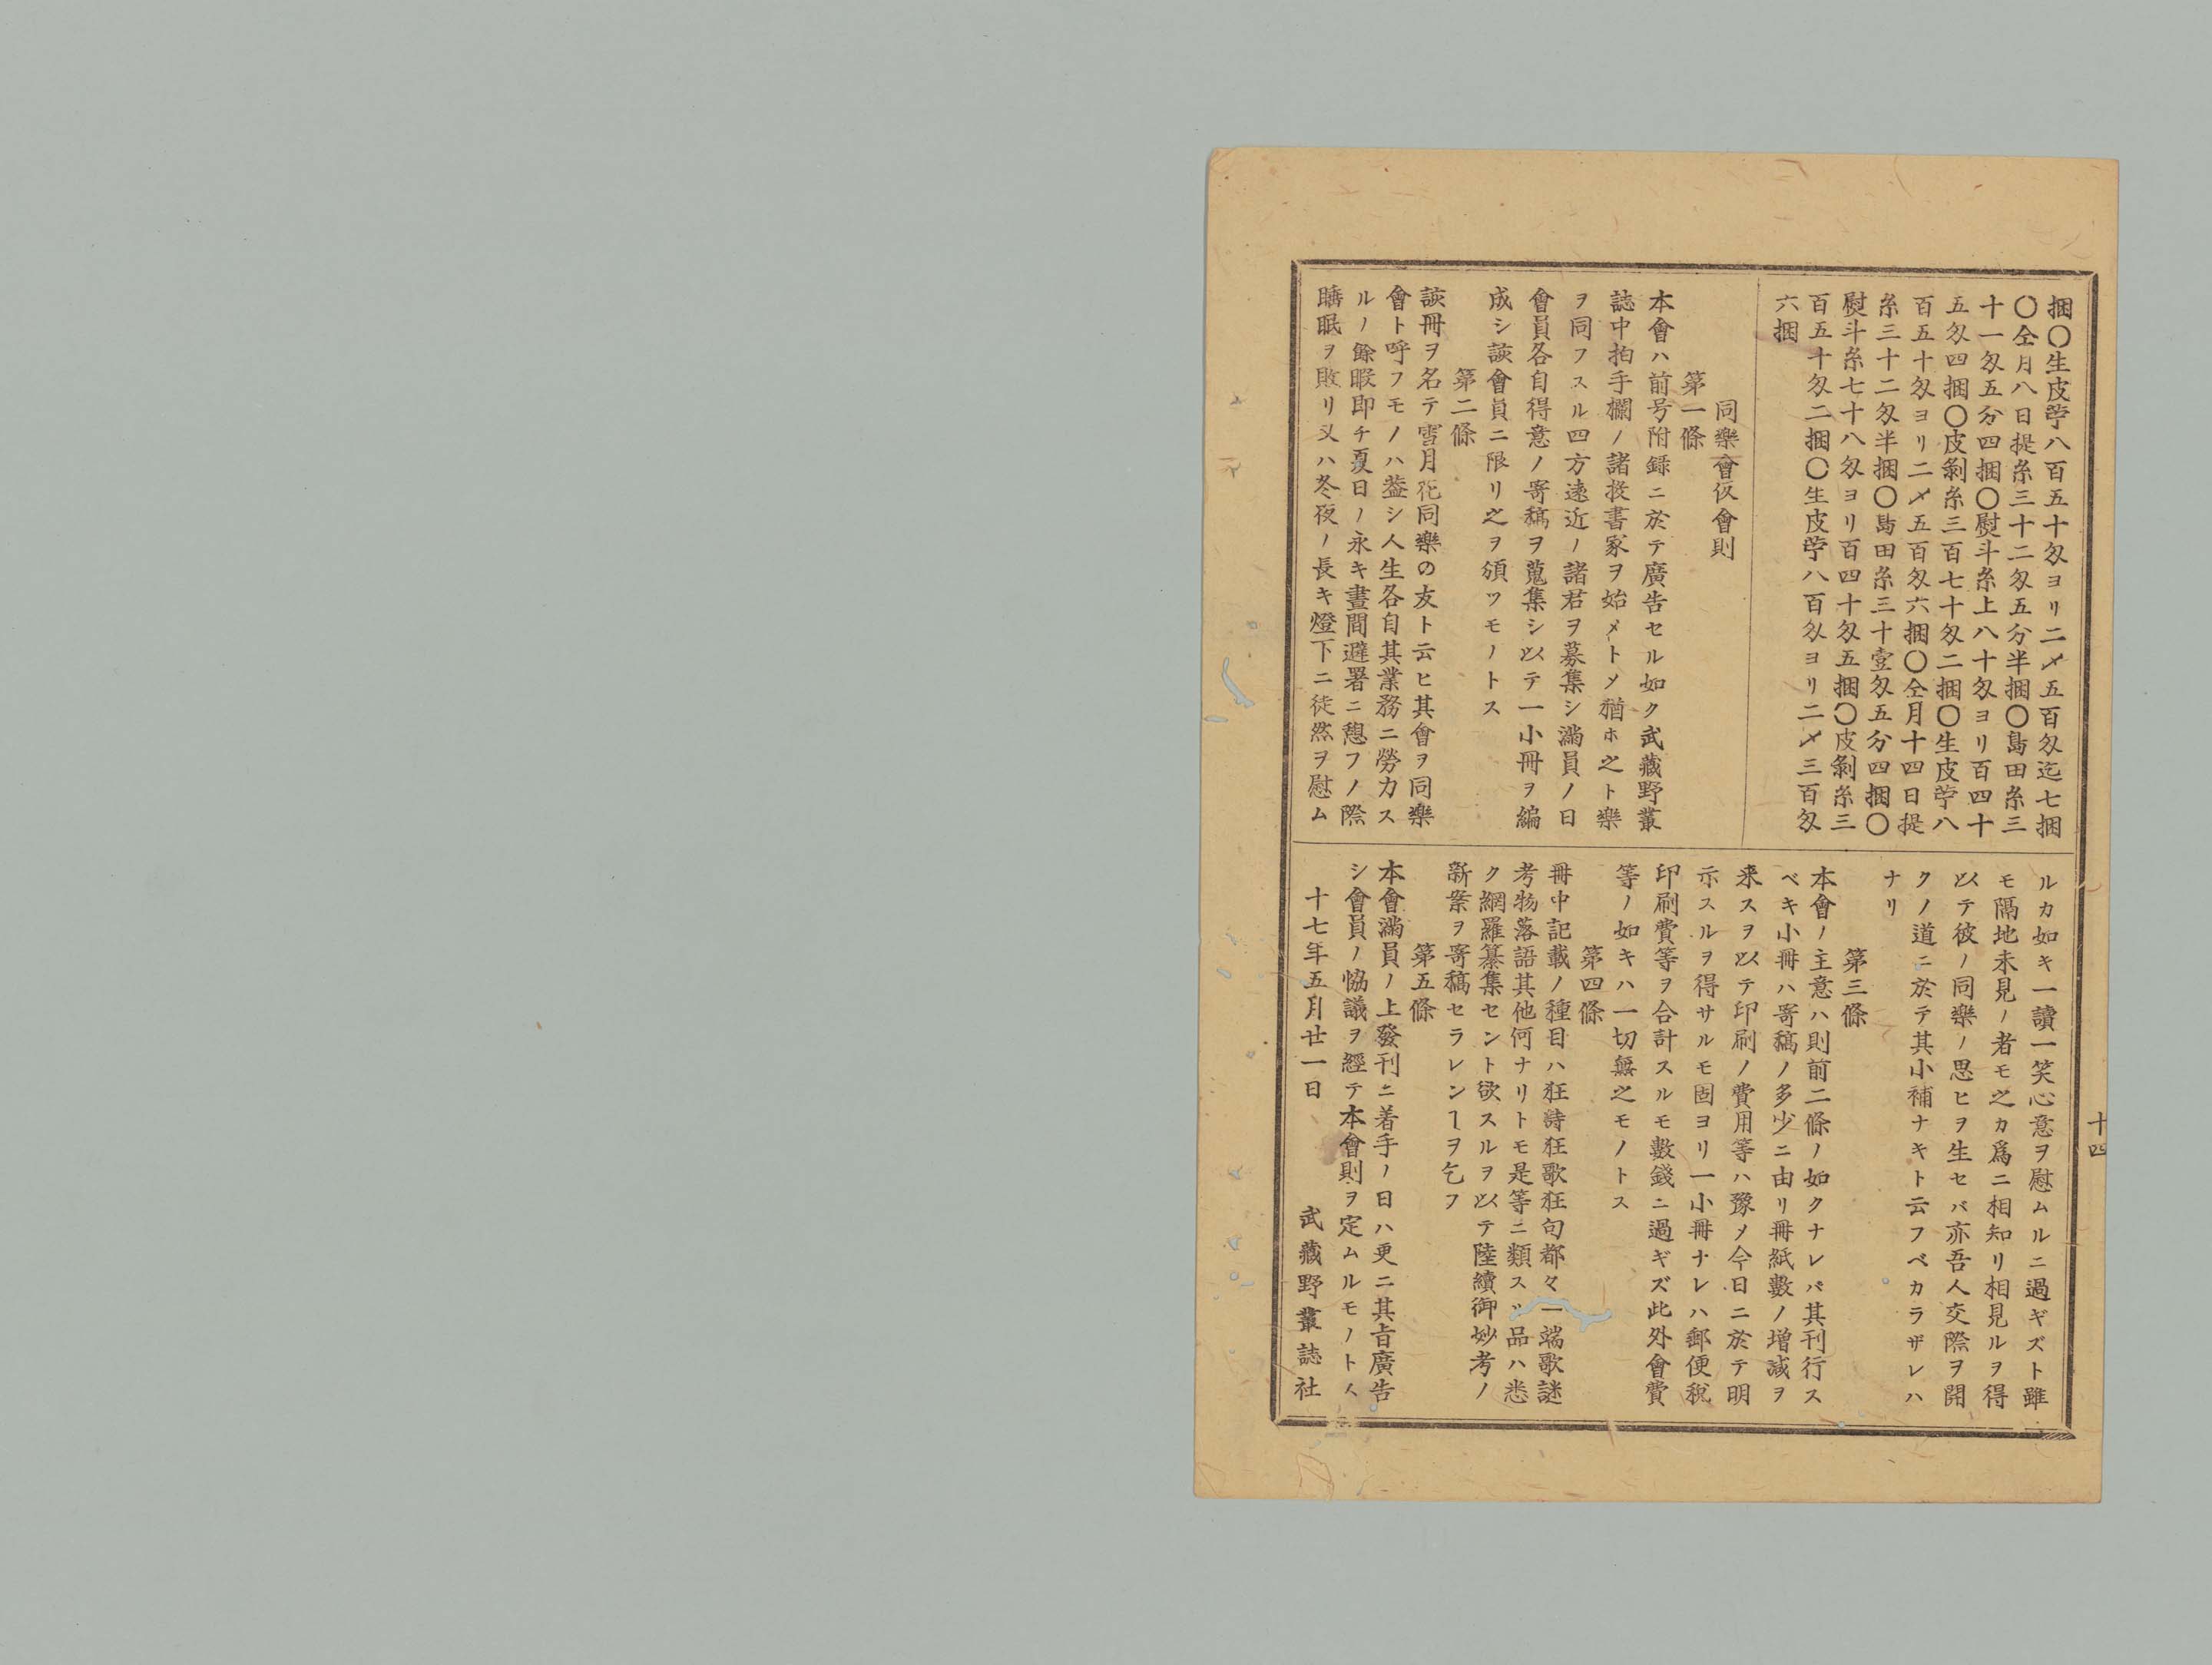 捆〇生皮苧八百五十匁ヨリ二〆五百匁迄七捆
〇仝月八日提糸三十二匁五分半捆〇島田糸三
十一匁五分四捆〇熨斗糸上八十匁ヨリ百四十
五匁四捆〇皮剝糸三百七十匁二捆〇生皮苧八
百五十匁ヨリ二〆五百匁六捆〇仝月十四日提
糸三十二匁半捆〇島田糸三十壹匁五分四捆〇
熨斗糸七十八匁ヨリ百四十匁五捆〇皮剝糸三
百五十匁二捆〇生皮苧八百匁ヨリ二〆三百匁
六捆
同樂會仮會則
第一條
本會ハ前号附録ニ於テ廣告セル如ク武藏野叢
誌中拍手欄ノ諸投書家ヲ始メトメ猶ホ之ト樂
ヲ同フスル四方遠近ノ諸君ヲ募集シ滿員ノ日
會員各自得意ノ寄稿ヲ蒐集シ以テ一小冊ヲ編
成シ該會員ニ限リ之ヲ頒ツモノトス
第二條
該冊ヲ名テ雪月花同樂の友ト云ヒ其會ヲ同樂
會ト呼フモノハ蓋シ人生各自其業務ニ勞力ス
ルノ餘暇即チ夏日ノ永キ晝間避署ニ憩フノ際
睡眠ヲ敗リ又ハ冬夜ノ長キ燈下ニ徒然ヲ慰ム
ルカ如キ一讀一笑心意ヲ慰ムルニ過ギズト雖
モ隔地未見ノ者モ之カ爲ニ相知リ相見ルヲ得
以テ彼ノ同樂ノ思ヒヲ生セバ亦吾人交際ヲ開
クノ道ニ於テ其小補ナキト云フベカラザレハ
ナリ
第三條
本會ノ主意ハ則前二條ノ如クナレバ其刊行ス
ベキ小冊ハ寄稿ノ多少ニ由リ冊紙數ノ増减ヲ
来スヲ以テ印刷ノ費用等ハ豫メ今日ニ於テ明
示スルヲ得サルモ固ヨリ一小冊ナレハ郵便税
印刷費等ヲ合計スルモ數錢ニ過ギズ此外會費
等ノ如キハ一切無之モノトス
第四條
冊中記載ノ種目ハ狂詩狂歌狂句都々一端歌謎
考物落語其他何ナリトモ是等ニ類スル品ハ悉
ク網羅纂集セント欲スルヲ以テ陸續御妙考ノ
新案ヲ寄稿セラレンヿヲ乞フ
第五條
本會滿員ノ上發刊ニ着手ノ日ハ更ニ其旨廣告
シ會員ノ恊議ヲ經テ本會則ヲ定ムルモノトス
十七年五月廿一日
武藏野叢誌社
十四